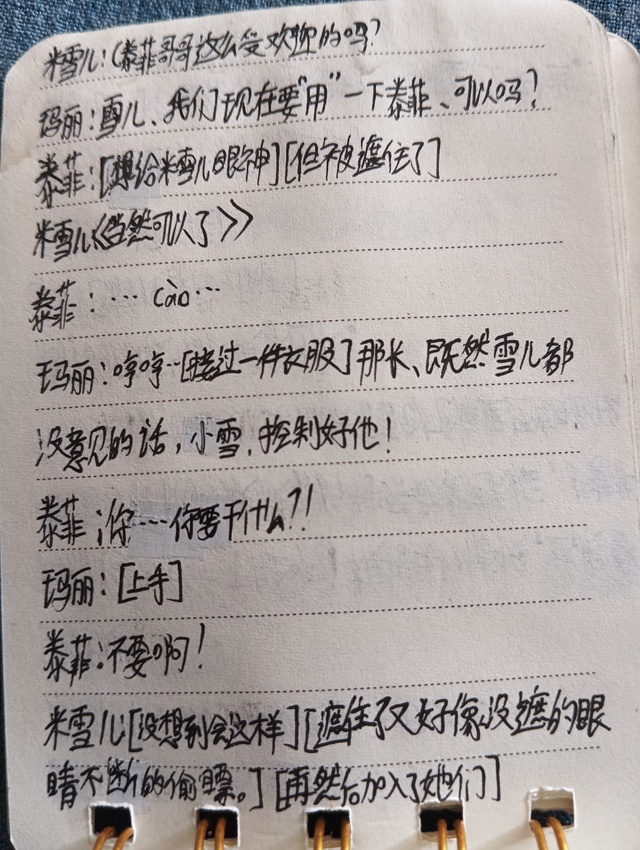 米雪儿:(泰菲哥哥这么受欢迎的吗?
玛丽:雪儿、我们现在要"用"一下泰菲、可以吗?
泰菲:[想给米雪儿眼神][但被遮住了]
米雪儿《当然可以了》》
泰菲:… cào…
玛丽:哼哼…[接过一件衣服]那长、既然雪儿都
没意见的话,小雪,控制好他!
泰菲:你……你要干什么?!
玛丽:[上手]
泰菲:不要啊!
米雪儿:[没想到会这样][遮住了又好像没遮的眼
睛不断的偷瞟。][再然后加入了她们]